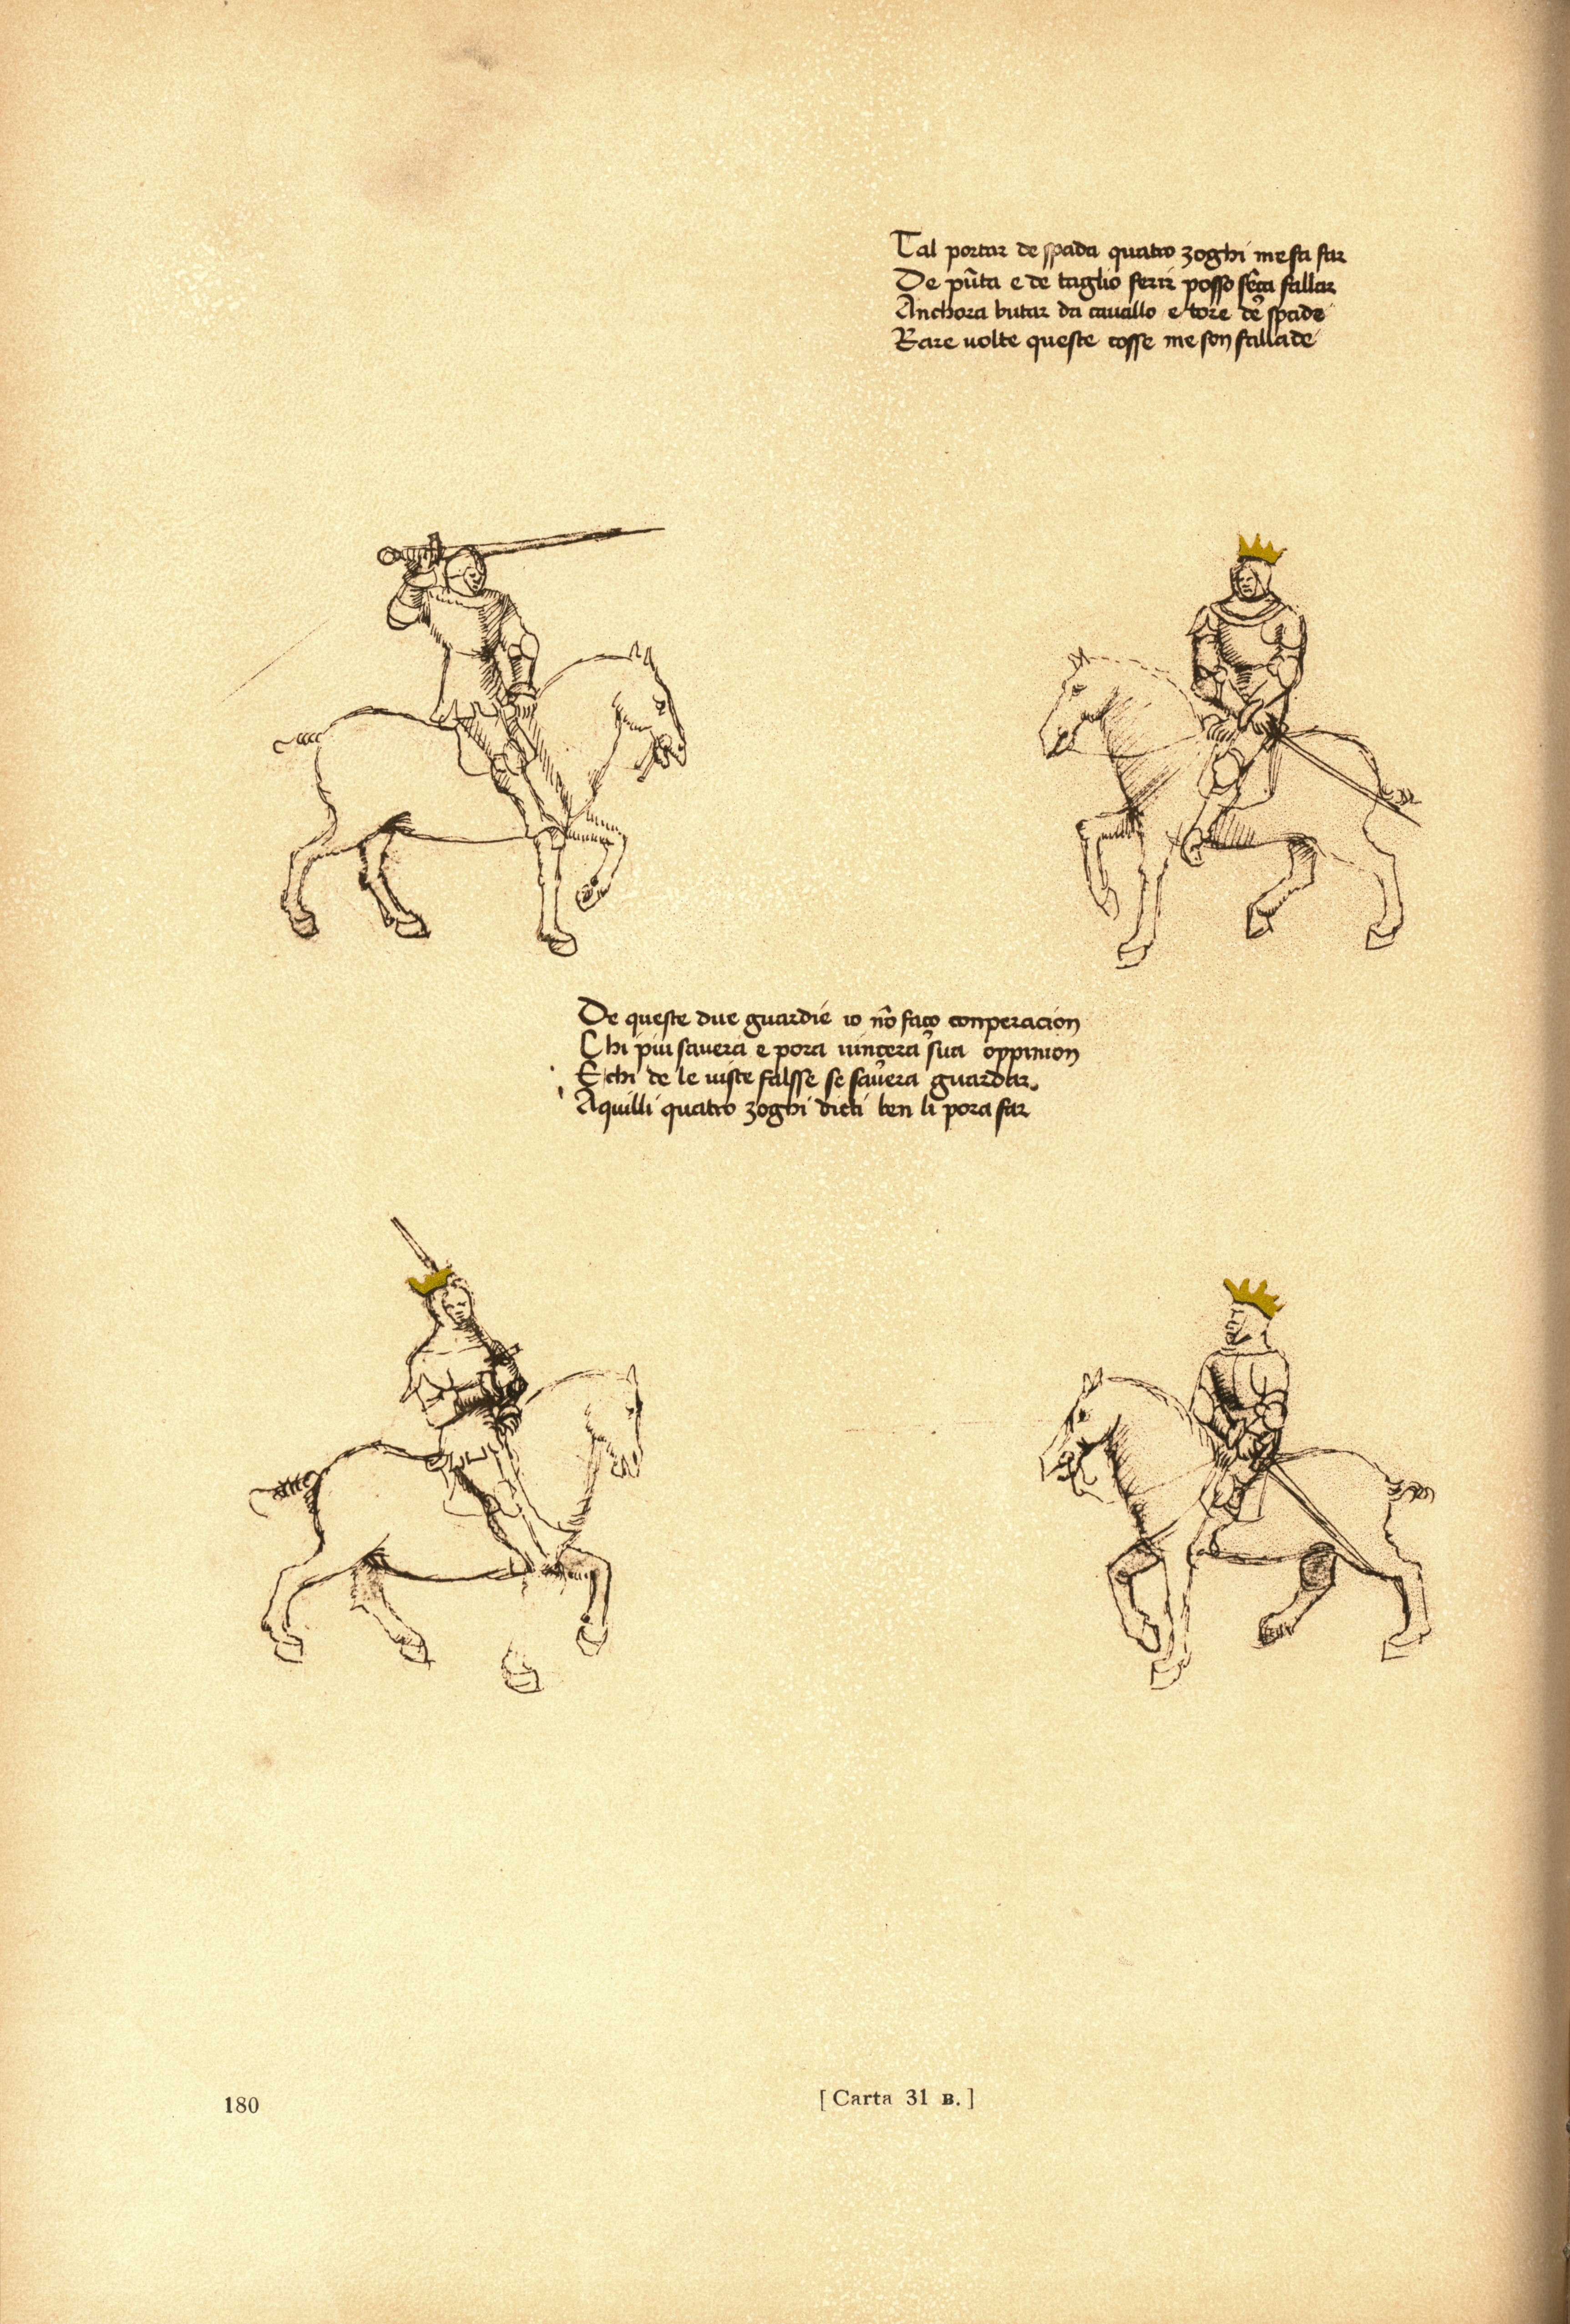 Tal portar de spada quatro zoghi me fa far
De pũta e de taglio ferir posso sẽça fallar
Anchora butar da cauallo e tore de spade
Rare uolte queste cosse me son fallade
De queste due guardie io nõ faço conperacion
Chi piu sauera e pora uincera sua oppinion
E chi de le uiste falsse se sauera guardar.
Aquilli quatro zoghi dicti ben li pora far
180
[Carta 31 B.]